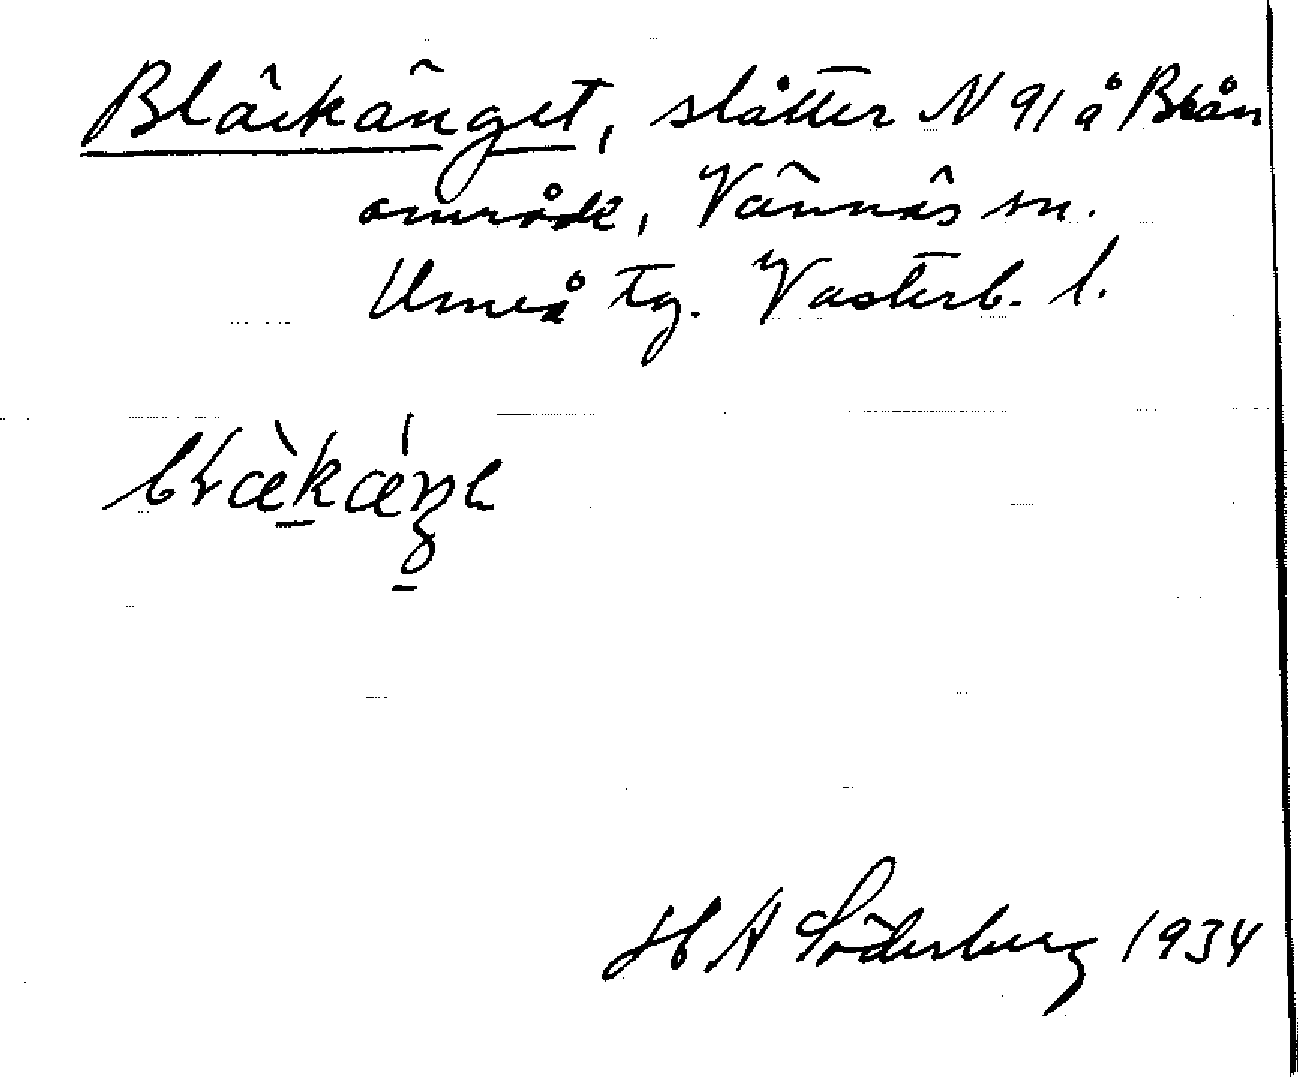 Bläckänget, slåtter N 91 å Blån
område, Vännäs sn.
Umeå tg. Västerb. l.
H A Söderberg 1934